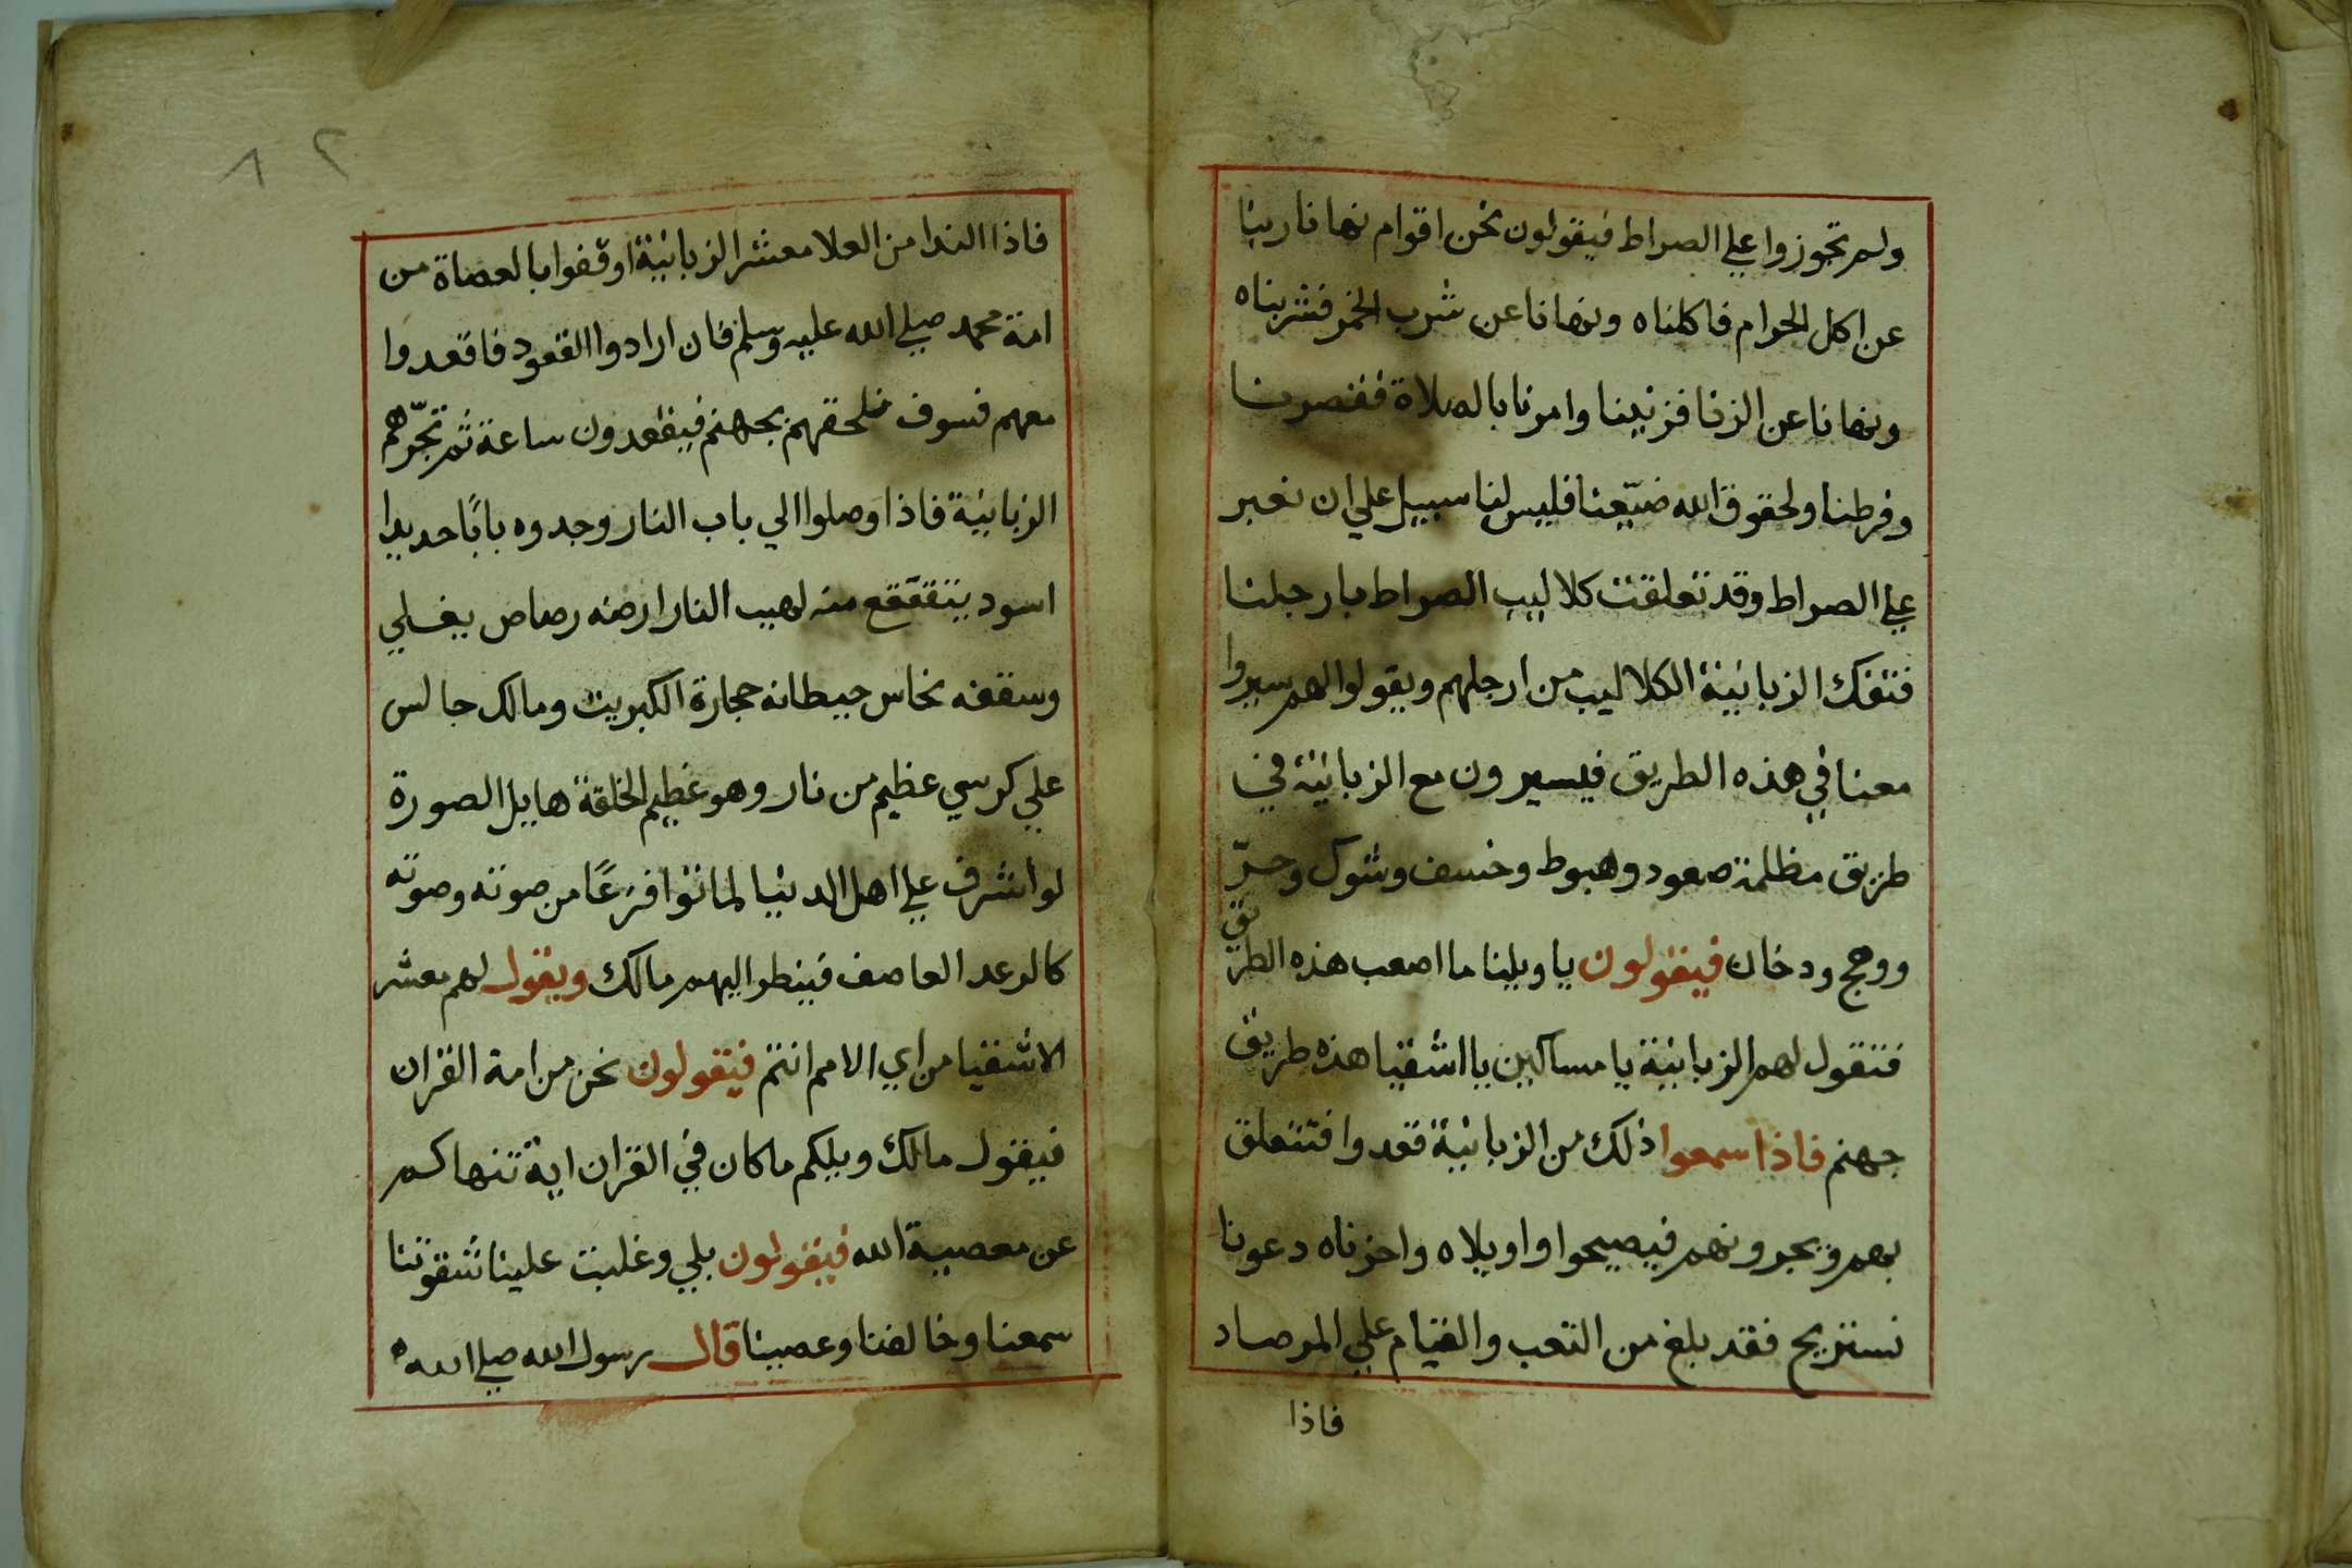 ولم تجوزوا علي الصراط فيقولون نحن اقوام نهانا ربنا
عن اكل الحرام فاكلناه ونهانا عن شرب الخمر فشربناه
ونهانا عن الزنا فزنينا وامرنا بالصلاة فقصرنا
وفرطنا ولحقوق الله ضيّعنا فليس لنا سبيل علي ان نعبر
علي الصراط وقد تعلقت كلاليب الصراط بارجلنا
فتفك الزبانية الكلاليب من ارجلهم ويقولوا لهم سيروا
معنا في هذه الطريق فيسيرون مع الزبانية في
طريق مظلمة صعود وهبوط وخسف وشوك وحرّ
ووهج ودخان فيقولون يا ويلنا ما اصعب هذه الطريق
فتقول لهم الزبانية يا مساكين يا اشقيا هذه طريق
جهنم فاذا سمعوا ذلك من الزبانية قعدوا فتتعلق
بهم ويجرونهم فيصيحوا واويلاه واحزناه دعونا
نستريح فقد بلغ من التعب والقيام علي المرصاد
فاذا
٨٢
فاذا الندا من العلا معشر الزبانية اوقفوا بالعصاة من
امة محمد صلي الله عليه وسلم فان ارادوا القعود فاقعدوا
معهم فسوف نلحقهم بجهنم فيقعدون ساعة ثم تجرّهم
الزبانية فاذا وصلوا الي باب النار وجدوه بابًا حديدا
اسود يتقعقع منه لهيب النار ارضه رصاص يغلي
وسقفه نحاس حيطانه حجارة الكبريت ومالك جالس
علي كرسي عظيم من نار وهو عظيم الخلقة هايل الصورة
لو اشرف علي اهل الدنيا لماتوا فزعًا من صوته وصوته
كالرعد العاصف فينظر اليهم مالك ويقول لهم معشر
الاشقيا من اي الامم انتم فيقولون نحن من امة القران
فيقول مالك ويلكم ماكان في القران اية تنهاكم
عن معصية الله فيقولون بلي وغلبت علينا شقوتنا
سمعنا وخالفنا وعصينا قال رسول الله صلي الله